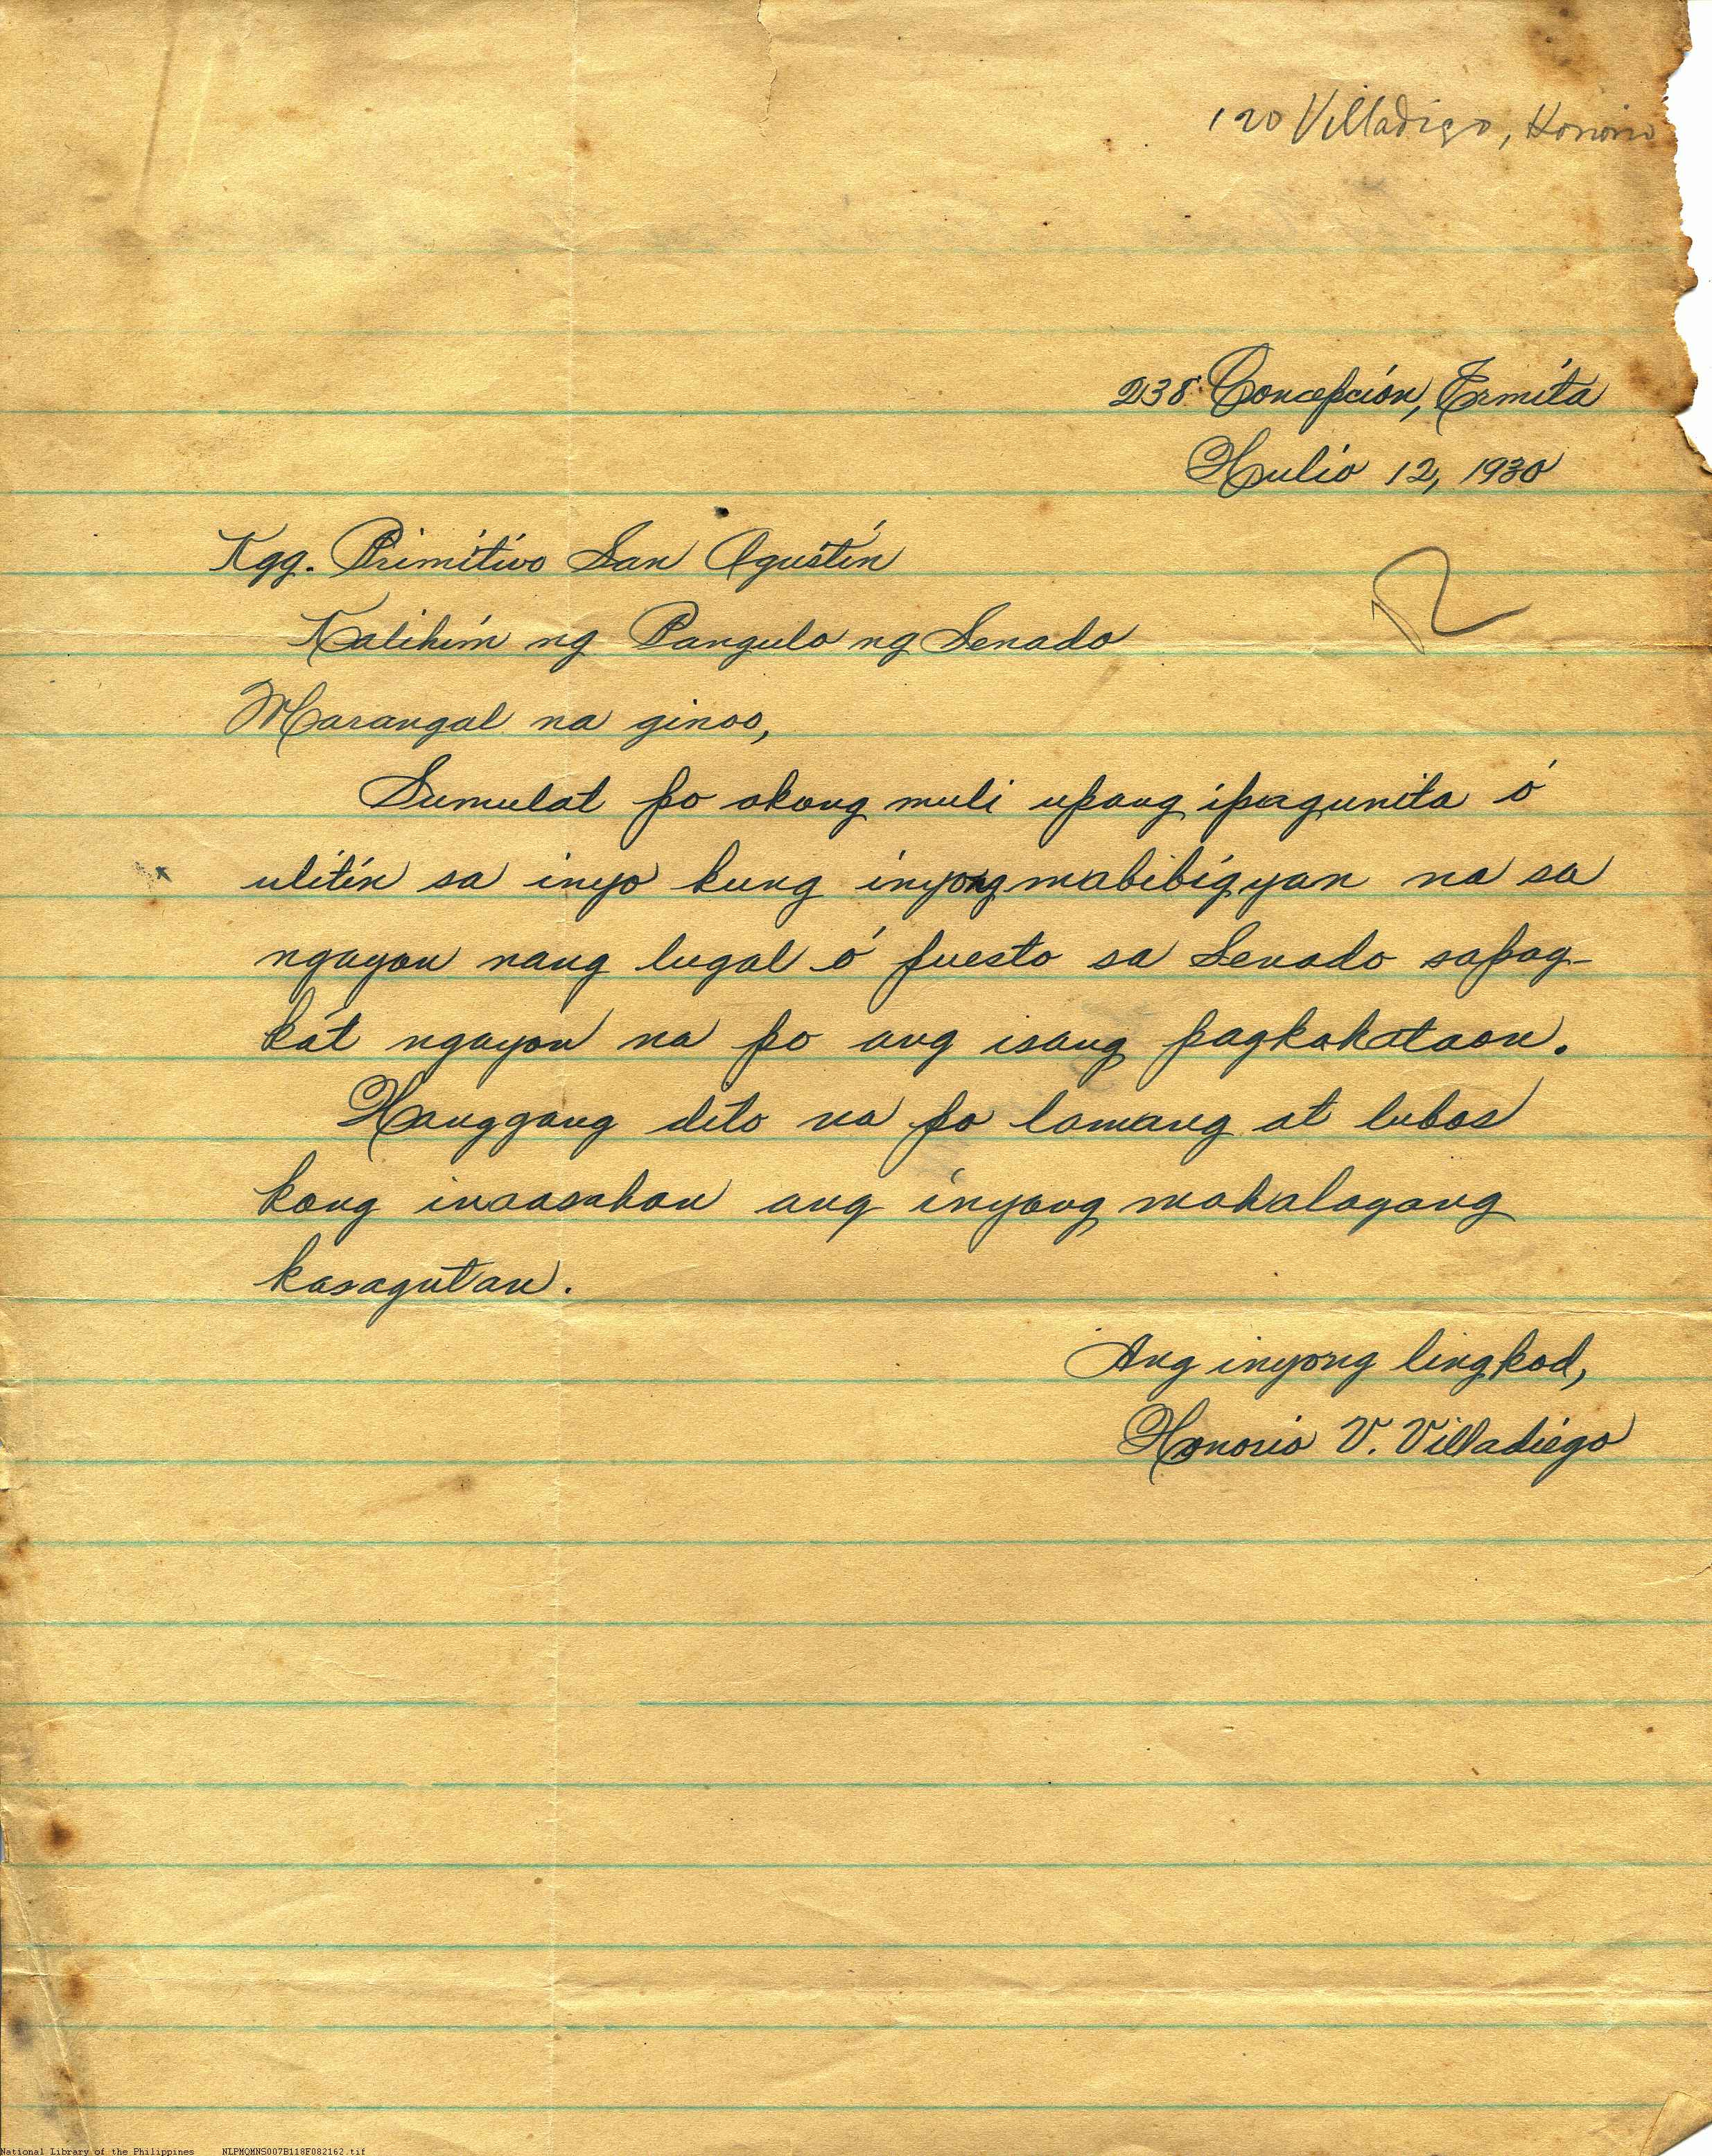 120 Villadigo, Honorio
238 Concepción, Ermita
Hulio 12, 1930
Kgg. Primitivo San Agustin
Kalihim ng Pangulo ng Senado
Marangal na ginoo,
Sumulat po akong muli upang ipagunita ó
ulitin sa inyo kung inyong mabibigyan na sa
ngayon nang lugal ó puesto sa Senado sapag-
kát ngayon na po ang isang pagkakataon.
Hanggang dito na po lamang at lubos
kong inaasahan ang inyong mahalagang
kasagutan.
Ang inyong lingkod,
Honorio V. Villadiego
National Library of the Philippines NLPMQMNS007B118F082162.tif